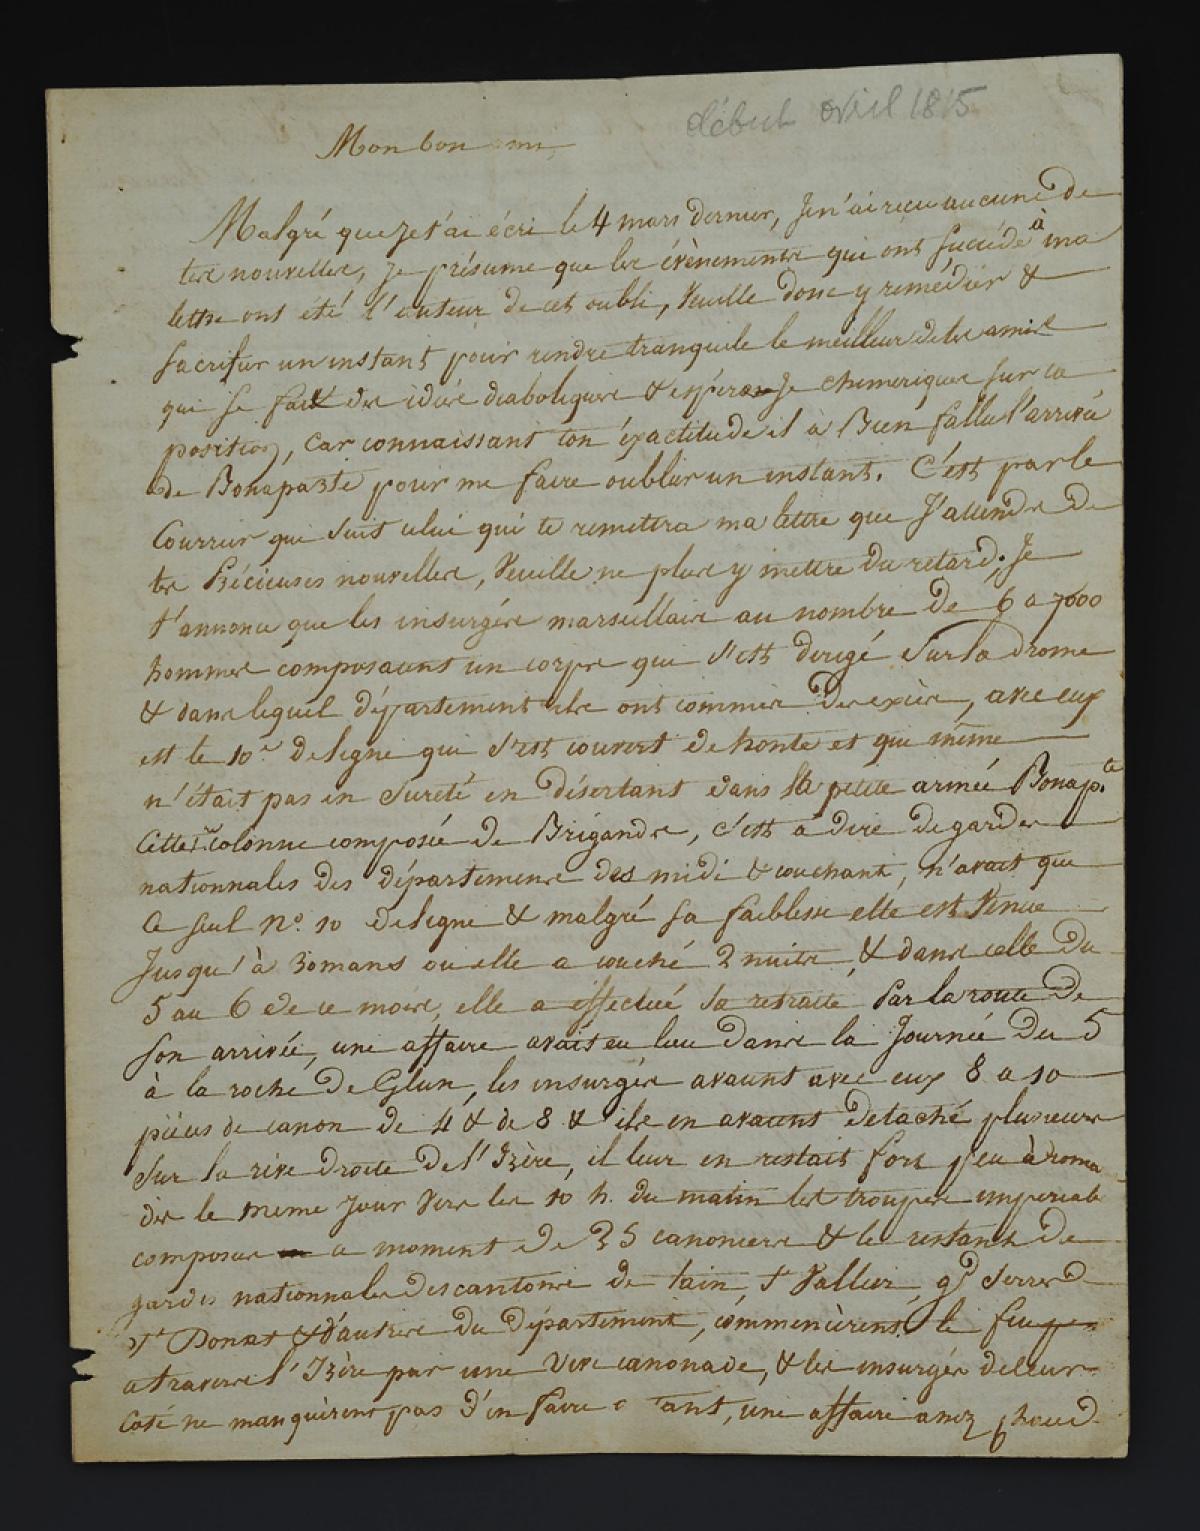 début avril 1815
Mon bon ami,
Malgré que je t'ai écri le 4 mars dernier, je n'ai reçu aucune de
tes nouvelles, je présume que les évènements qui ont succédé à ma
lettre ont été l'auteur de cet oubli, veuille donc y remédier &
sacrifier un instant pour rendre tranquile le meilleur de tes amis
qui se fait des idées diaboliques & espérons-je chimeriques sur ta
position, car connaissant ton éxactitude il à bien fallu l'arrivée
de Bonaparte pour me faire oublier un instant. C'est par le
Courrier qui suit celui qui te remettra ma lettre que j'attends de
tes précieuses nouvelles, veuille ne plus y mettre du retard; Je
t'annonce que les insurgés marseillais au nombre de 6 a 7000
hommes composaient un corps qui s'est dirigé sur la drome
& dans lequel département ils ont commis des excès, avec eux
est le 10e de ligne qui s'est couvert de honte et qui même
n'était pas en sureté en désertant dans la petite armée Bonap.te
Cette colonne composée de Brigands, c'est a dire de gardes
nationnales des départements des midi & couchant, n'avait que
le seul N.o 10 de ligne & malgré sa faiblesse elle est venue
Jusqu'à Romans ou elle a couché 2 nuits, & dans celle du
5 au 6 de ce mois, elle a effectué sa retraite par la route de
son arrivée, une affaire avait eu lieu dans la Journée du 5
à la roche de Glun, les insurgés avaient avec eux 8 a 10
pièces de canon de 4 & de 8 & ils en avaient detaché plusieurs
sur la rive droite de l'Izère, il leur en restait fort peu à roma
dès le même jour vers les 10 h. du matin les troupes imperiale
composée a moment de 25 canoniers & le restant de
gardes nationnales des cantons de tain, St Vallier, gd Serre &
St Donat & d'autres du département, commencèrent le feu
a travers l'Izère par une vive canonade, & les insurgés de leur
coté ne manquèrent pas d'en faire tant, une affaire assez chaud